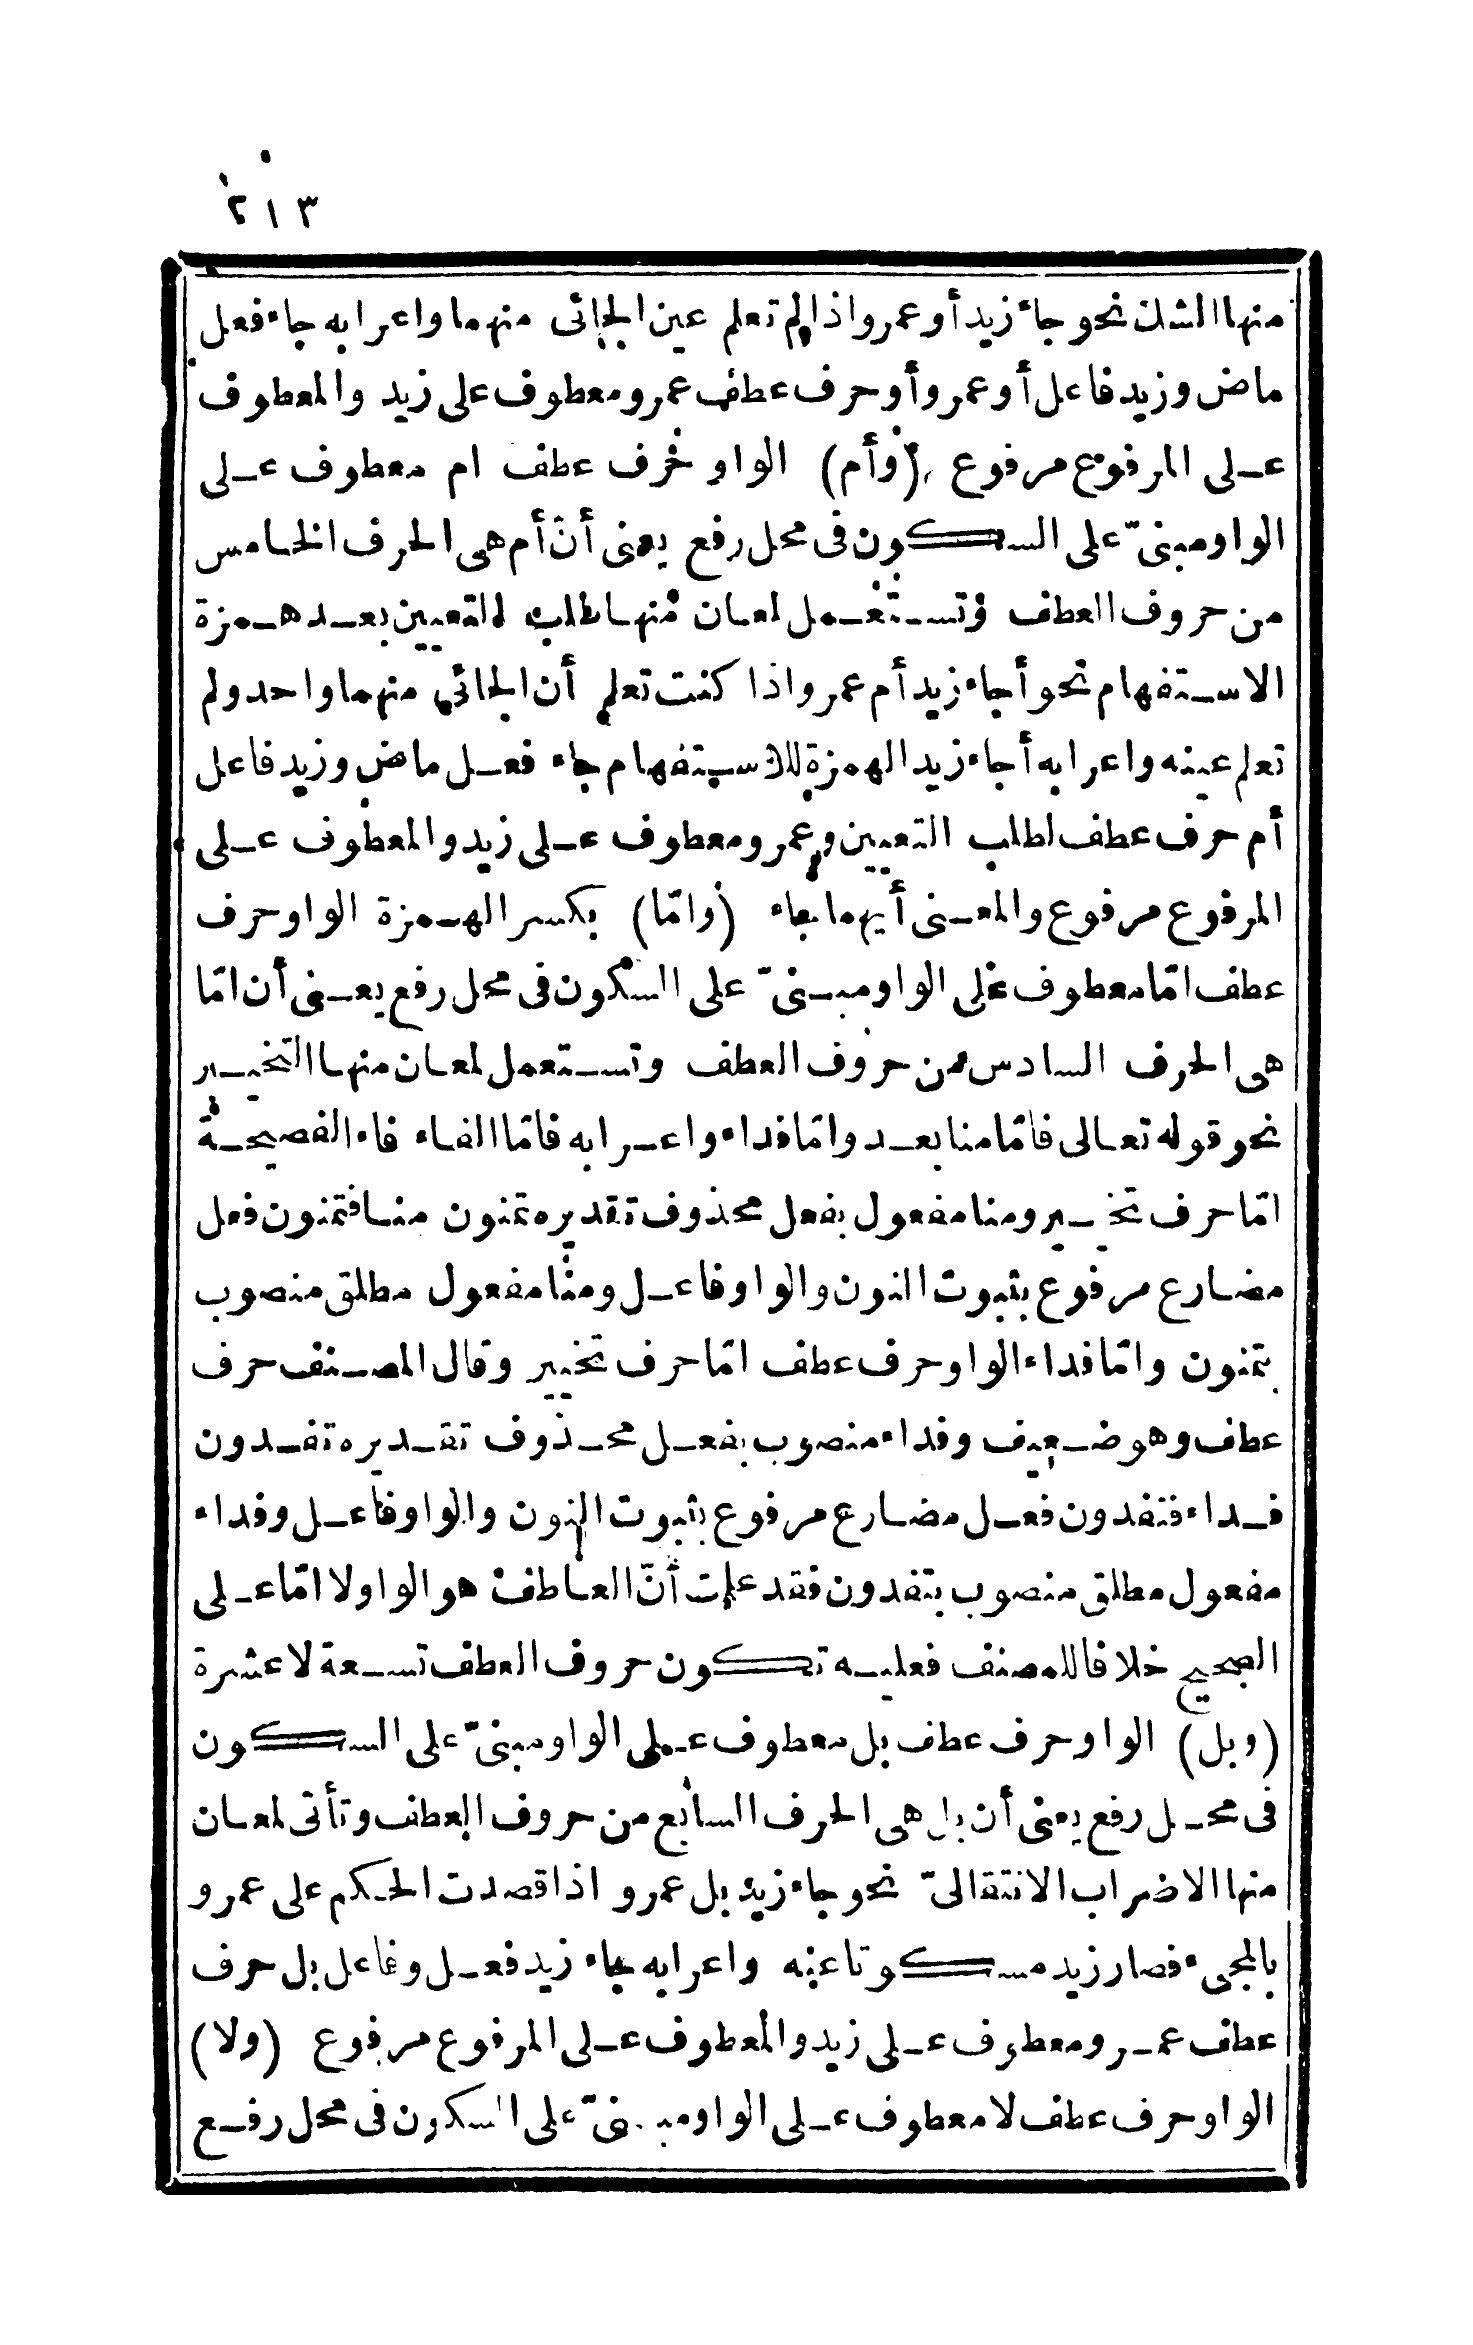 ٢١٣
منها الشك نحو جاء زيد أو عمرو اذا لم تعلم عين الجائى منهما واعرابه جاء فعل
ماض وزيد فاعل أو عمرو أو حرف عطف عمرو معطوف على زيد والمعطوف
على المرفوع مرفوع (وأم) الواو حرف عطف ام معطوف على
الواو مبنىّ على السكون فى محل رفع يعنى أنّ أم هى الحرف الخامس
من حروف العطف وتستعمل لمعان منها طلب التعيين بعد همزة
الاستفهام نحو أجاء زيد أم عمرو اذا كنت تعلم أن الجائى منهما واحد ولم
تعلم عينه واعرابه أجاء زيد الهمزة للاستفهام جاء فعل ماض وزيد فاعل
أم حرف عطف لطلب التعيين وعمرو معطوف على زيد والمعطوف على
المرفوع مرفوع والمعنى أيهما جاء (وامّا) بكسر الهمزة الواو حرف
عطف امّا معطوف على الواو مبنىّ على السكون فى محل رفع يعنى أن امّا
هى الحرف السادس من حروف العطف وتستعمل لمعان منها التخيير
نحو قوله تعالى فامّا منا بعد وامّا فداء واعرابه فامّا الفاء فاء الفصيحة
امّا حرف تخيير ومنا مفعول بفعل محذوف تقديره تمنون منا فتمنون فعل
مضارع مرفوع بثبوت النون والواو فاعل ومنا مفعول مطلق منصوب
بتمنون وامّا فداء الواو حرف عطف امّا حرف تخيير وقال المصنف حرف
عطف وهو ضعيف وفداء منصوب بفعل محذوف تقديره تفدون
فداء فتفدون فعل مضارع مرفوع بثبوت النون والواو فاعل وفداء
مفعول مطلق منصوب بتفدون فقد علمت أنّ العاطف هو الواو لا امّا على
الصحيح خلافا للمصنف فعليه تكون حروف العطف تسعة لا عشرة
(وبل) الواو حرف عطف بل معطوف على الواو مبنىّ على السكون
فى محل رفع يعنى أن بل هى الحرف السابع من حروف العطف وتأتى لمعان
منها الاضراب الانتقالىّ نحو جاء زيد بل عمرو اذا قصدت الحكم على عمرو
بالمجىء فصار زيد مسكوتا عنه واعرابه جاء زيد فعل وفاعل بل حرف
عطف عمرو معطوف على زيد والمعطوف على المرفوع مرفوع (ولا)
الواو حرف عطف لا معطوف على الواو مبنىّ على السكون فى محل رفع